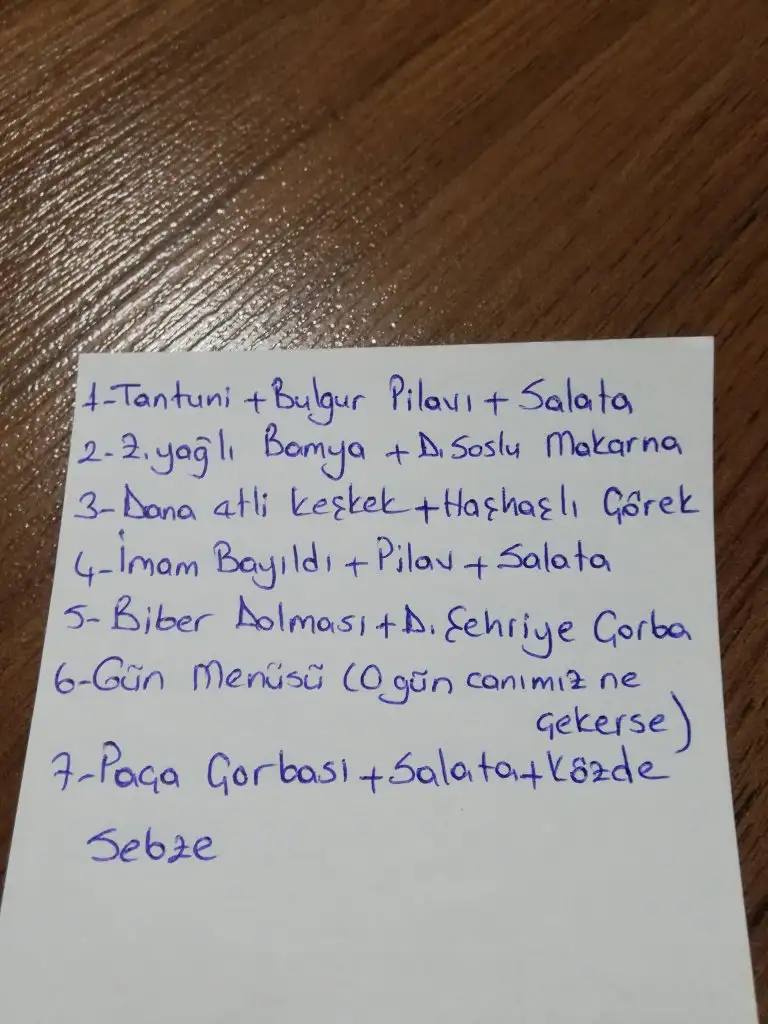 1-Tantuni + Bulgur Pilavı + Salata
2-Z.yağlı Bamya + D.Soslu Makarna
3-Dana etli keşkek + Haşhaşlı Çörek
4-İmam Bayıldı + Pilav + Salata
5-Biber Dolması + D.Şehriye Çorba
6-Gün Menüsü (O gün canımız ne
çekerse)
7-Paça Çorbası + Salata + Közde
Sebze